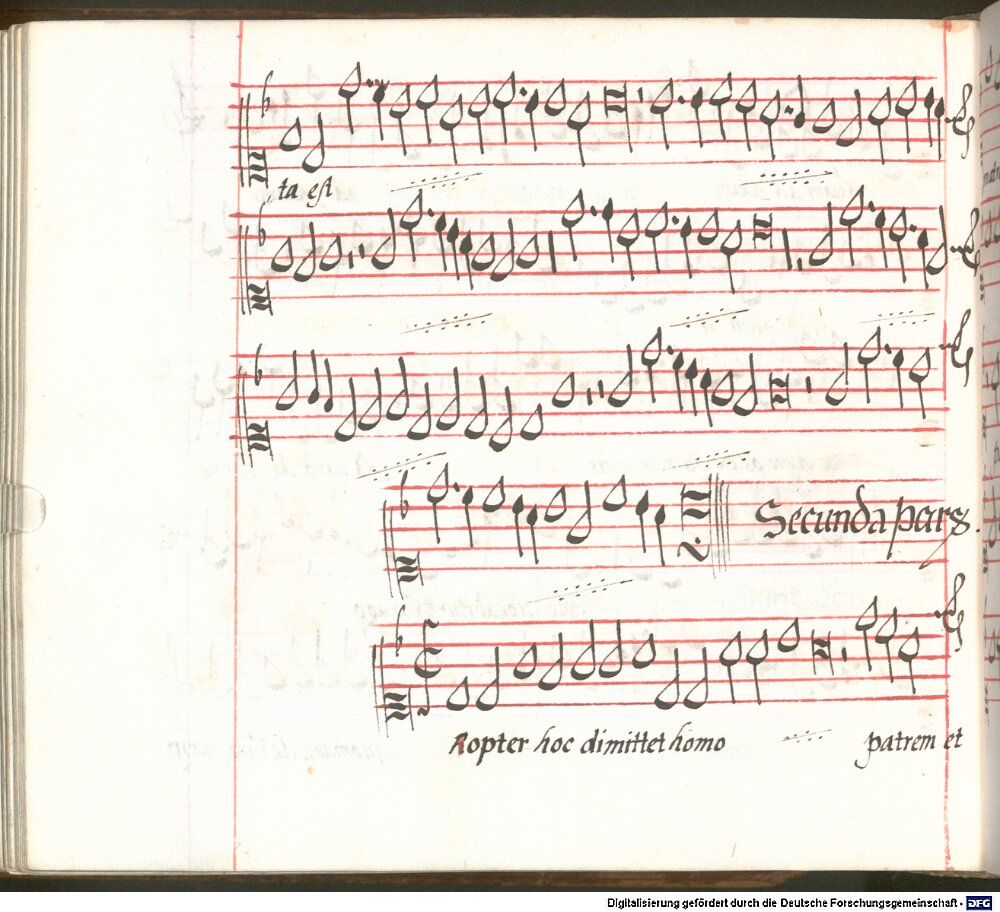 ta est
Secunda pars.
Propter hoc dimittet homo patrem et
Digitalisierung gefördert durch die Deutsche Forschungsgemeinschaft - DFG